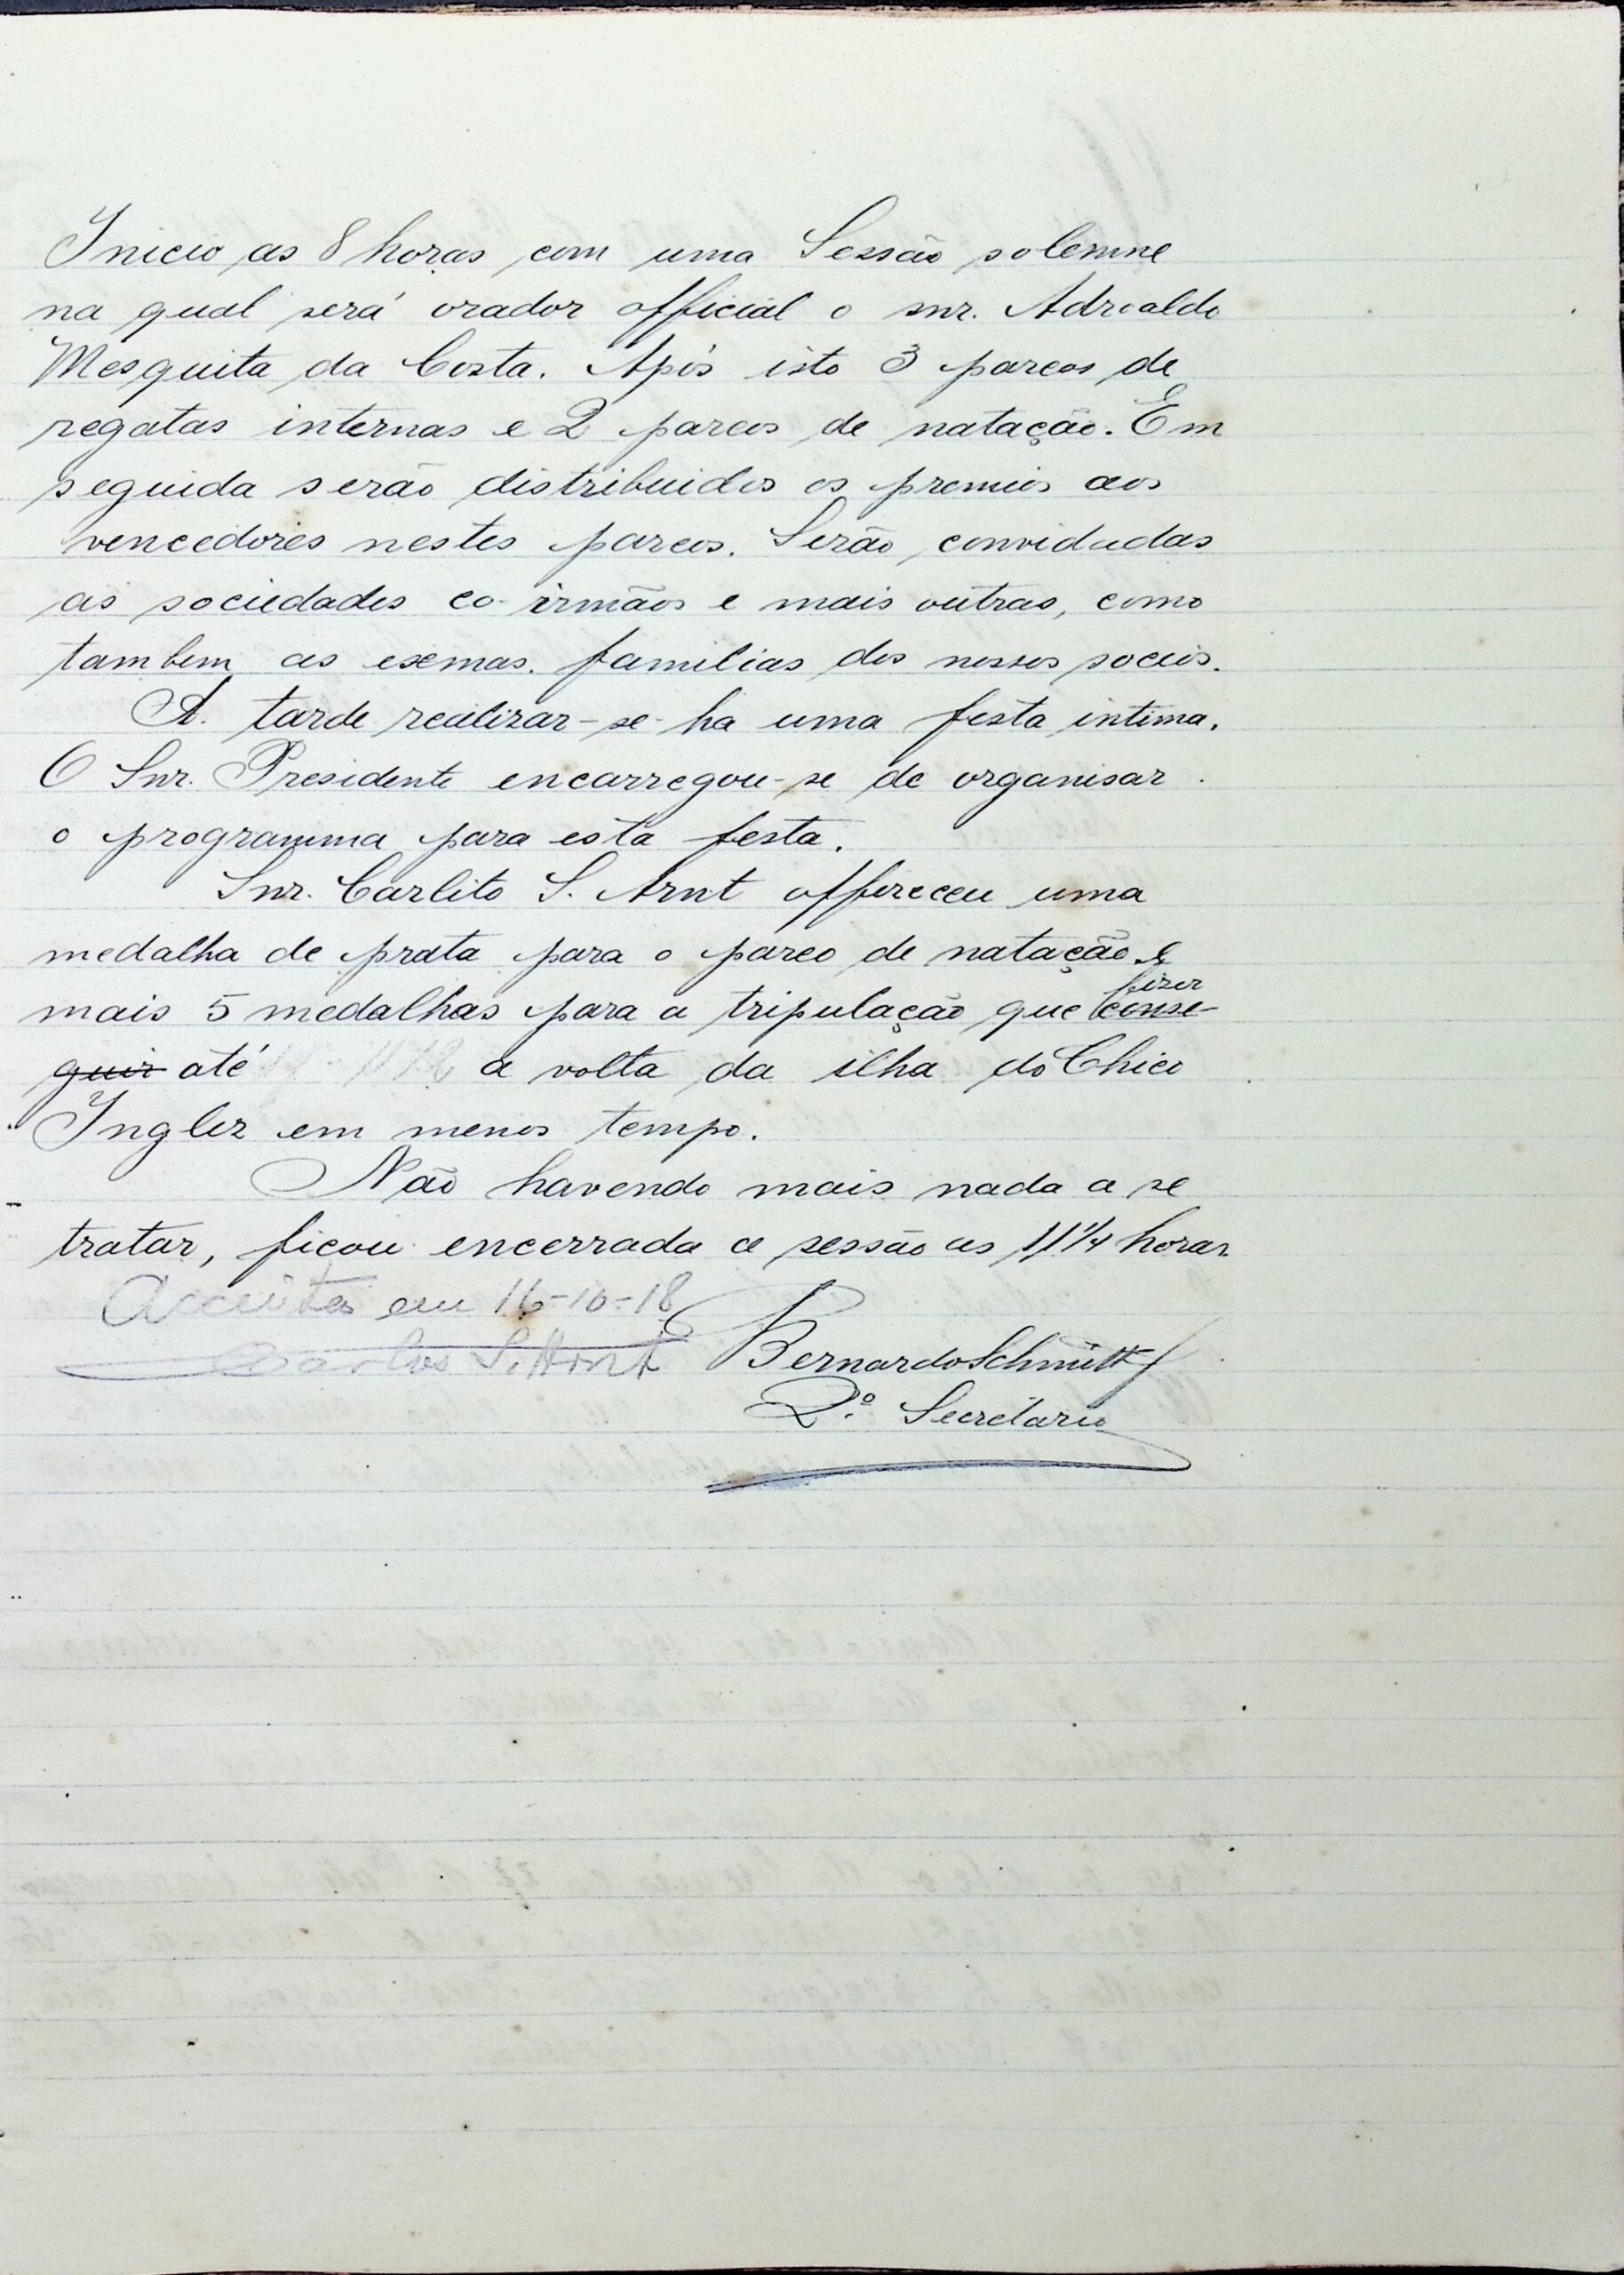 Inicio as 8 horas com uma Sessão solemne
na qual será orador official o snr. Adroaldo
Mesquita da Costa. Após isto 3 pareos de
regatas internas e 2 pareos de natação. Em
seguida serão distribuidos os premios aos
vencedores nestes pareos. Serão convidadas
as sociedades co-irmãos e mais outras, como
tambem as exmas. familias dos nossos socios.
A. tarde realizar-se-ha uma festa intima.
O Snr. Presidente encarregou-se de organisar
o programma para esta festa.
Snr. Carlito S. Arnt offereceu uma
medalha de prata para o pareo de natação e
mais 5 medalhas para a tripulação que fizer conse-
guir até a volta da ilha do Chico
Inglez em menos tempo.
Não havendo mais nada a se
tratar, ficou encerrada a sessão as 11 1/4 horas.
Acceita em 16-10-18
Carlos S. Arnt Bernardo Schmitt
2º. Secretario